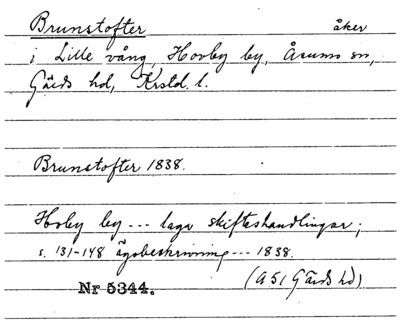 Brunstofter åker
i Lille vång, Hovby by, Åsums sn,
Gärds hd, Krstd. l.
Brunstofter 1838.
Hovby by --- laga skifteshandlingar;
s. 131-148 ägobeskrivning --- 1838.
(A 51 Gärds hd)
Nr 5344.